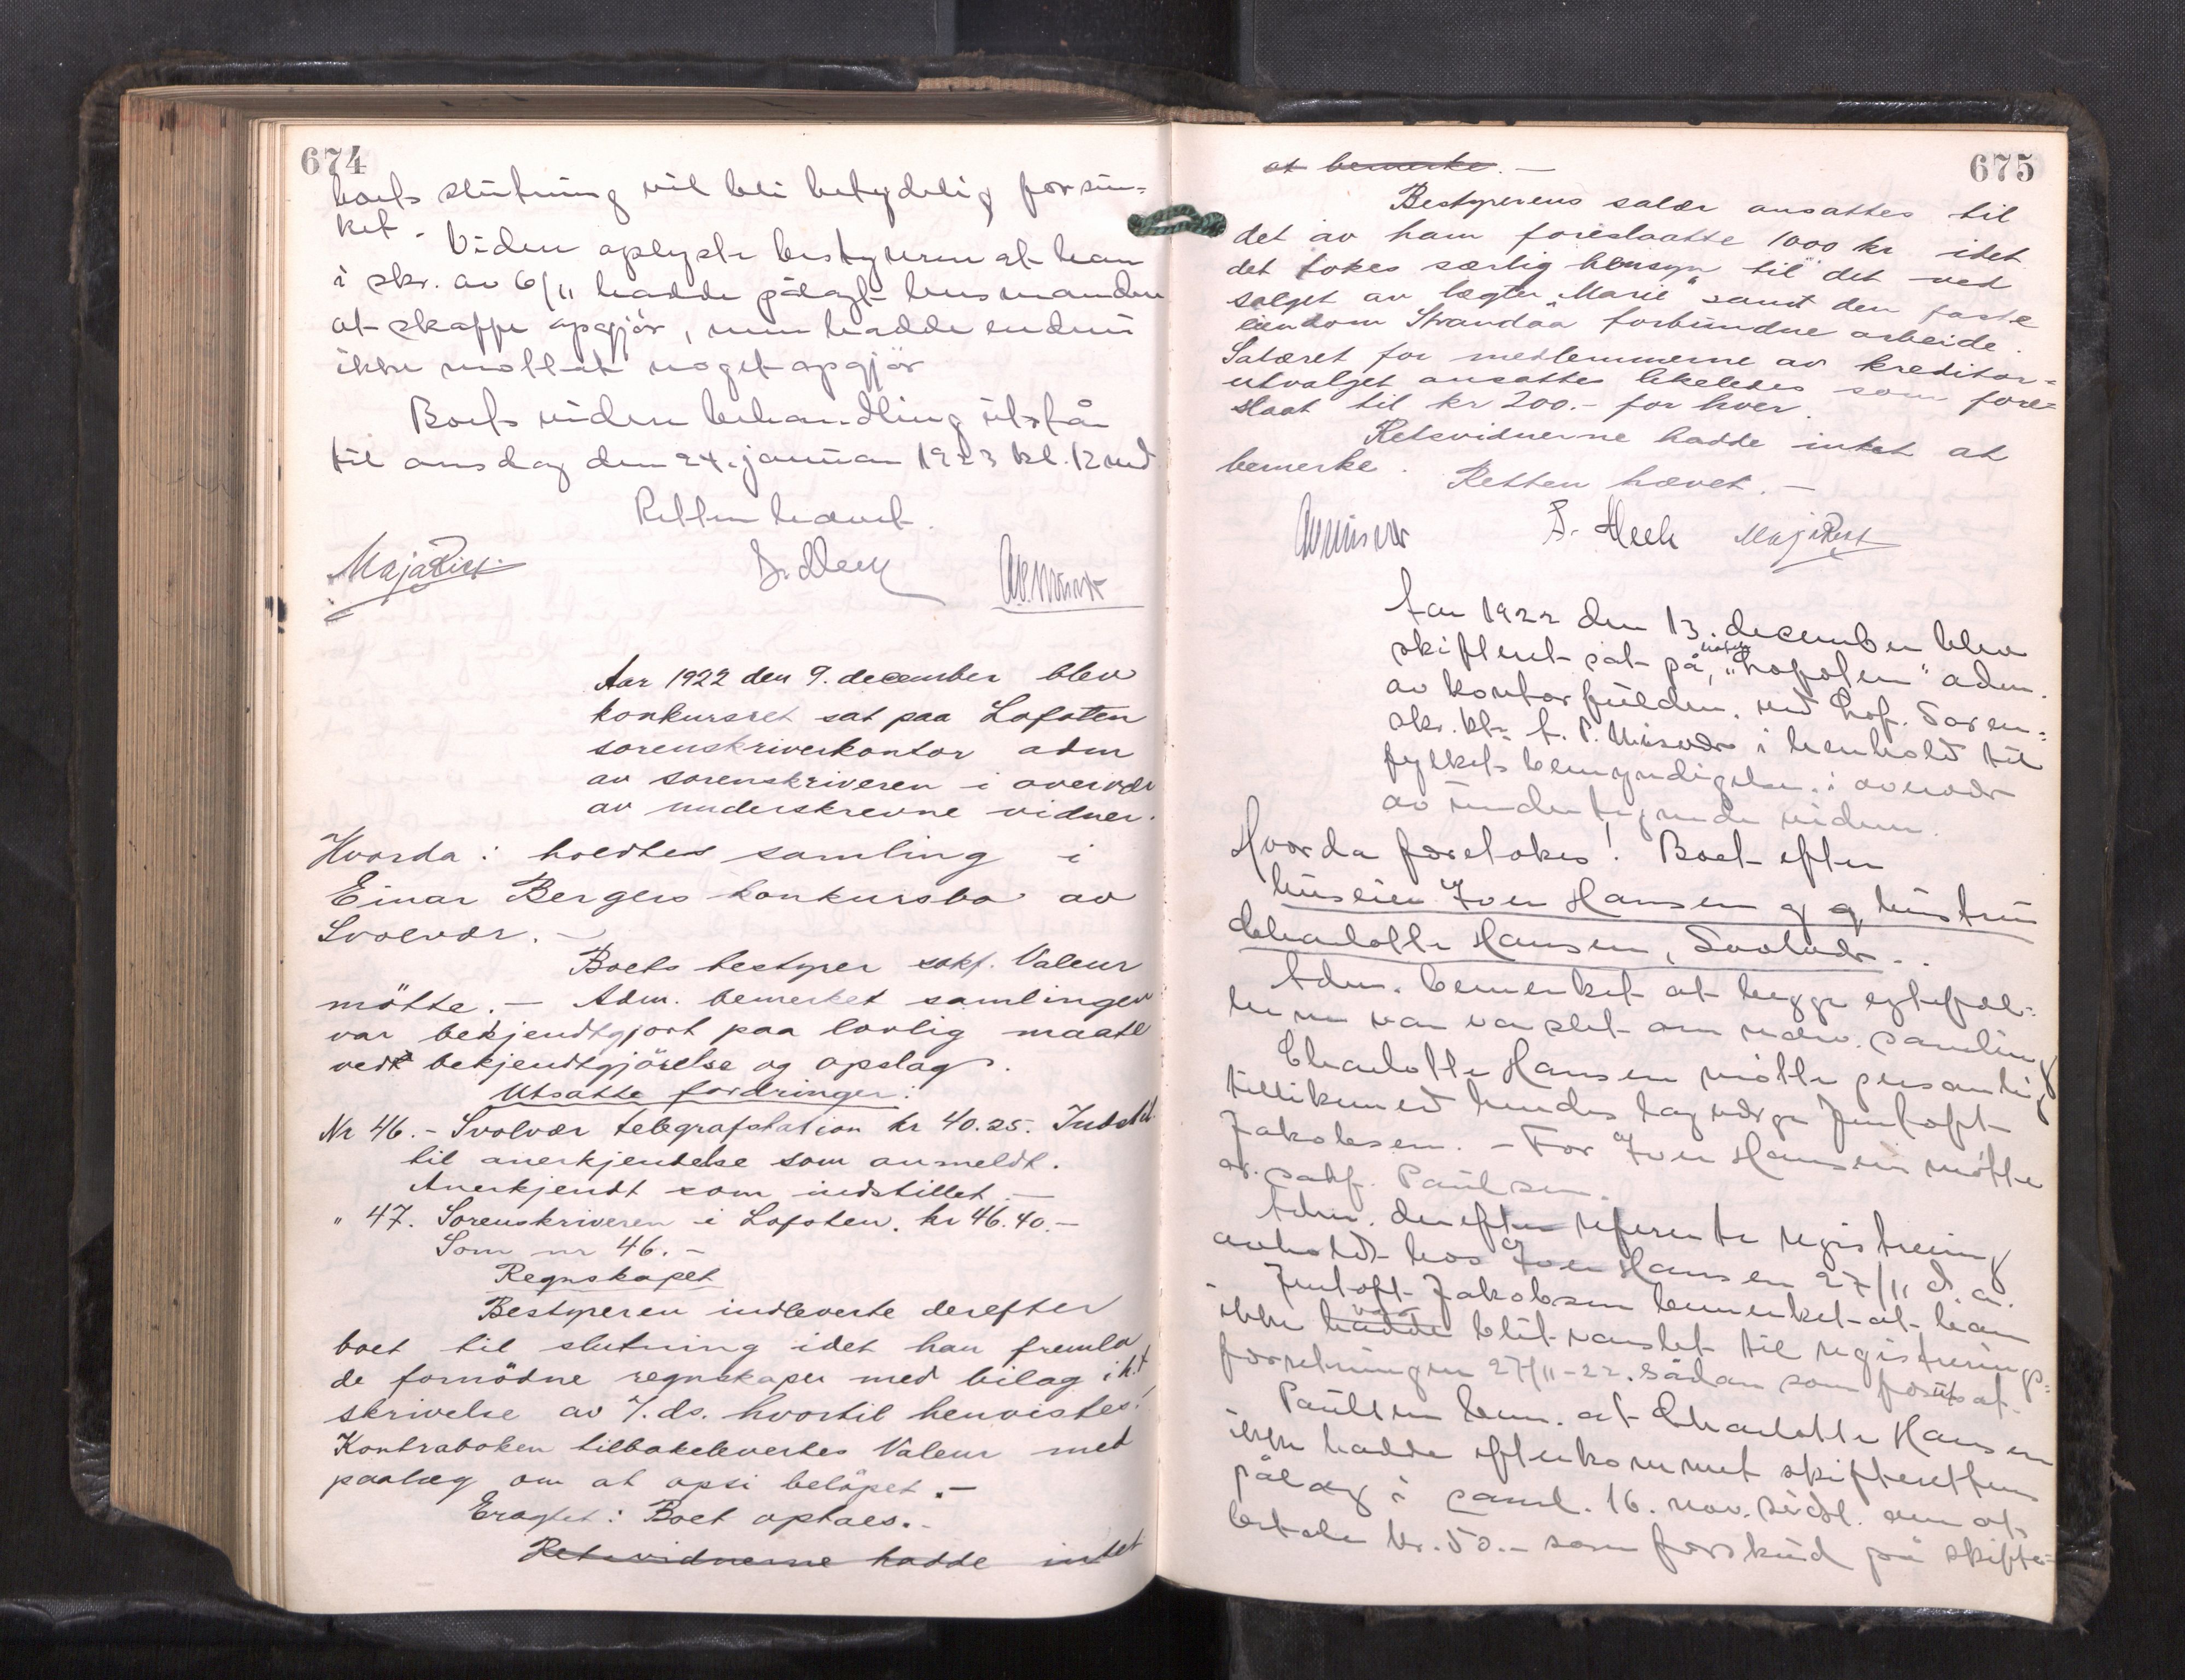 674
boets slutning vil bli betydelig forsin-
ket.
Viden oplyste bestyreren at han
i skr. av 6/11 hadde pålagt husmanden
at skaffe opgjör, men hadde endnu
ikke mottat noget opgjör
Boets videre behandling utstår
til onsdag den 24. januar 1923 kl. 12 md
Retten hævet.
Maja Rist
Aar 1922 den 9. december blev
konkursret sat paa Lofoten
sorenskriverkontor adm
av sorenskriveren i overvær
av underskrevne vidner.
Hvorda: holdtes samling i
Einar Bergers konkursbo av
Svolvær. -
Boets bestyrer sakf. Valeur
mötte. - Adm. bemerket samlingen
var bekjendtgjort paa lovlig maate
ved bekjendtgjörelse og opslag.
Utsatte fordringer:
Nr 46. - Svolvær telegrafstation kr 40.25. Indstil.
til anerkjendelse som anmeldt.
Anerkjendt som indstillet. -
" 47. Sorenskriveren i Lofoten. kr 46.40. -
Som nr 46. -
Regnskapet
Bestyreren indleverte derefter
boet til slutning idet han fremla
de fornödne regnskaper med bilag i h.t
skrivelse av 7. ds. hvortil henvistes.
Kontraboken tilbakelevertes Valeur med
paalæg om at opsi belöpet. -
Eragtet: Boet optaes. -
Retsvidnerne hadde intet
675
at bemerke. -
Bestyrerens salær ansattes til
det av ham foreslaatte 1000 kr idet
det tokes særlig hensyn til det ved
salget av lægter "Marie" samt den faste
eiendom Strandaa forbundne arbeide.
Salæret for medlemmerne av kreditor-
utvalget ansattes likeledes som fore-
slaat til kr 200.- for hver.
Retsvidnerne hadde intet at
bemerke. Retten hævet. -
A.P. Misvær S. Heck Maja Rist
Aar 1922 den 13. december blev
skifteret sat på "Kofoten" adm.
av kontorfuldm. ved Lof. Soren-
skr. kt. A. P. Misvær i henhold til
fylkets bemyndigelse i overvær
av undertegnede vidner.
Hvorda foretokes! Boet efter
huseier Iver Hansen og hustru
Charlotte Hansen, Svolvær.
Adm. bemerket at begge egtefæl-
lerne var varslet om nærv. samling
Charlotte Hansen mötte personlig
tillikemed hendes lagværge Jentoft
Jakobsen. - For Iver Hansen mötte
o.r. sakf. Paulsen.
Adm. derefter refererte registrering
avholdt hos Iver Hansen 27/11 d.a.
Jentoft Jakobsen bemerket at han
ikke hadde blit varslet til registrerings-
forretningen 27/11-22. sådan som forutsat.
Paulsen bem. at Charlotte Hansen
ikke hadde efterkommet skifterettens
pålæg i saml. 16. nov. sidstl. om at
betale kr. 50.- som forskud på skifte-